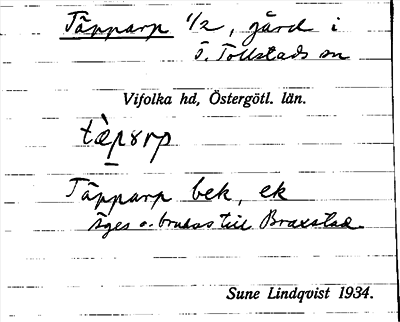 Täpparp 1/2, gård i
Ö. Tollstads sn
Vifolka hd, Östergötl. län.
tæ̀pąrp
Täpparp bek, ek
äges o. brukas till Braxstad
Sune Lindqvist 1934.